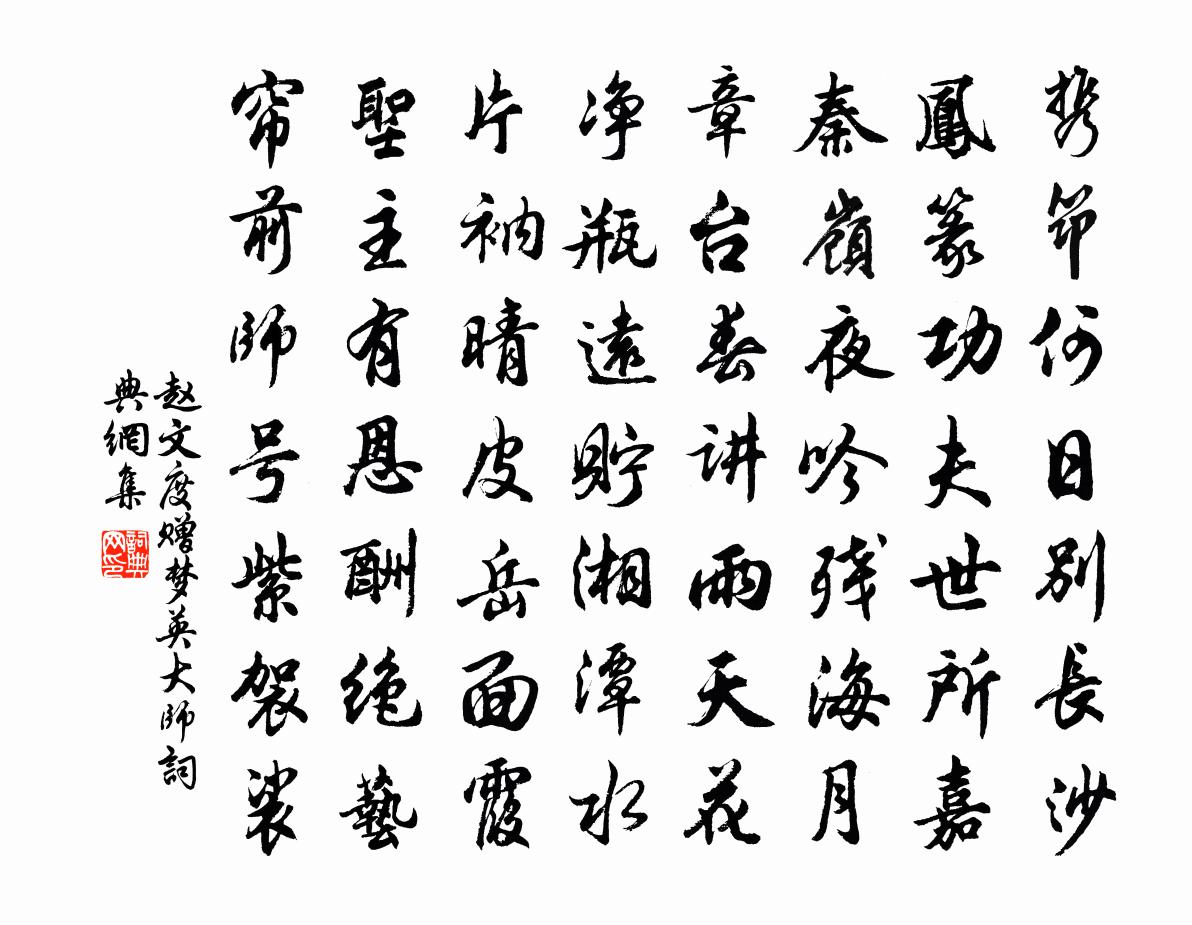 携笻何日別長沙
鳳篆功夫世所嘉
秦嶺夜吟残海月
章台春讲雨天花
净瓶遠貯湘潭水
片衲晴皮岳面霞
聖主有恩酬绝藝
帘前師号紫袈裟
赵文度赠梦英大師詞
典網集
詞典网印